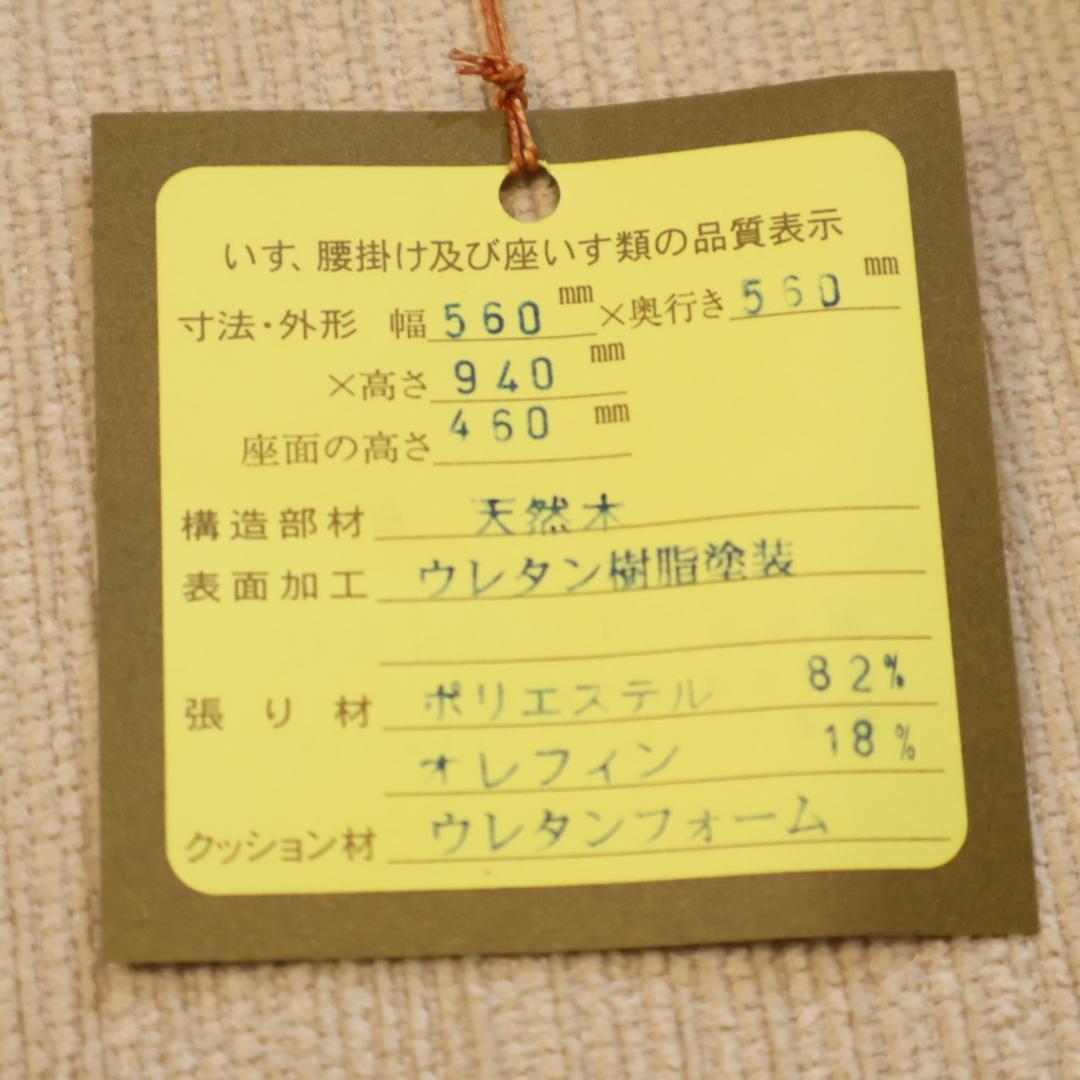 いす、腰掛け及び座いす類の品質表示
寸法・外形 幅 560 mm ×奥行き 560 mm
×高さ 940 mm
座面の高さ 460 mm
構造部材 天然木
表面加工 ウレタン樹脂塗装
張り材 ポリエステル 82%
オレフィン 18%
クッション材 ウレタンフォーム